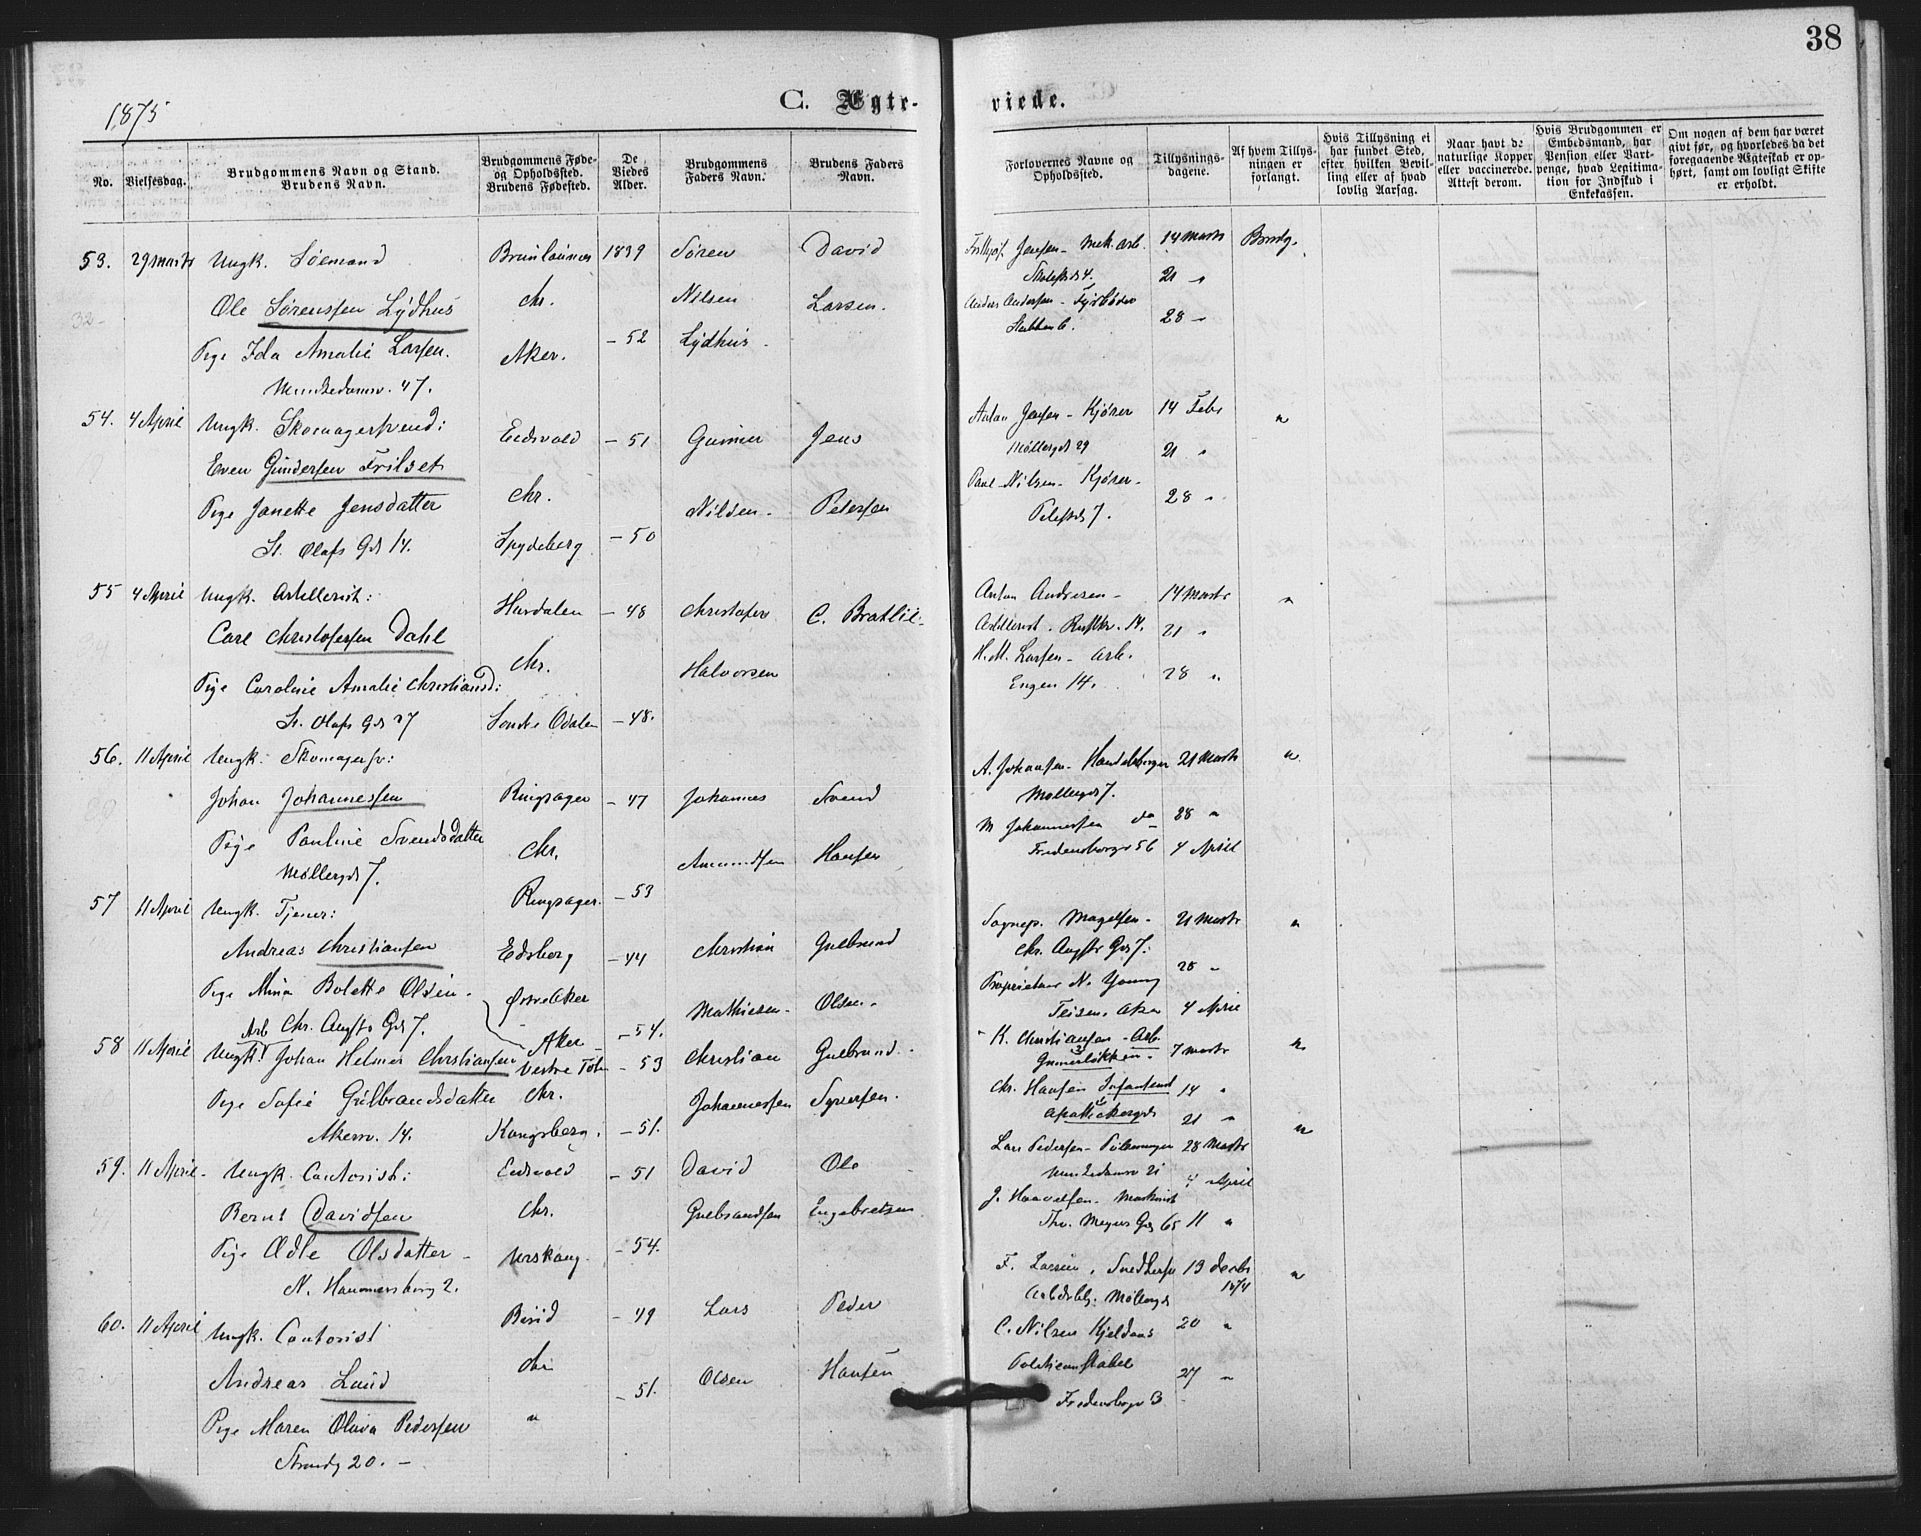 38
1875
C. Ægte-
viede.
No.
Vielsesdag.
Brudgommens Navn og Stand.
Brudens Navn.
Brudgommens Føde-
og Opholdssted.
Brudens Fødested.
De
Viedes
Alder.
Brudgommens
Faders Navn.
Brudens Faders
Navn.
Forlovernes Navne og
Opholdssted.
Tillysnings-
dagene.
Af hvem Tillys-
ningen er
forlangt.
Hvis Tillysning ei
har fundet Sted,
efter hvilken Bevil-
ling eller af hvad
lovlig Aarsag.
Naar havt de
naturlige Kopper
eller vaccinerede.
Attest derom.
Hvis Brudgommen er
Embedsmand, har
Pension eller Vart-
penge, hvad Legitima-
tion for Indskud i
Enkekassen.
Om nogen af dem har været
givt før, og hvorledes da det
foregaaende Ægteskab er op-
hørt, samt om lovligt Skifte
er erholdt.
53. 29 Marts Ungk. Sømand Brunlaunes 1839 Søren David Jensen - Mek. arb. 14 Marts Brudg.
21 "
Ole Sørenssen Lydhus Chr. Nilsen Larsen. Anders Andersen - Fyrbøder
28 "
Pige Ida Amalie Larsen. Aker. - 52 Lydhus.
Munkedamsv. 47.
54. 4 April Ungk. Skomagersvend: Eidsvold - 51 Gunner Jens Anton Jensen - Kjører 14 Febr "
Møllergd 29 21 "
Even Gundersen Frilset Paul Nilsen - Kjører -
Chr. 28 "
Pige Janette Jensdatter Nilsen. Petersen Pilestd 7.
St. Olafs Gd 14. Spydeberg - 50
55 4 April Ungk. Artillerist: Hurdalen - 48 Christofer C. Bratlie - Anton Andresen - 14 Marts "
Carl Christofersen Dahl Artillerist. 14. 21 "
Chr. Halvorsen H. M. Larsen - Arb.
Pige Caroline Amalie Christiansd: Engen 14. 28 "
St. Olafs Gd 27 Søndre Odalen - 48.
56. 11 April Ungk. Skomagersv: A. Johansen - Handelsborger 21 Marts "
Johan Johannessen Ringsager - 47 Johannes Svend Møllergd 7.
M Johannessen do 28 "
Pige Pauline Svendsdatter Chr. Amundsen Hansen Fredensborgv 56 4 April
Møllergd 7. Ringsager. - 53
57 11 April Ungk. Tjener: Sognepr. Magelsen - 21 Marts "
Chr. Augsts Gd 7.
Andreas Christiansen Edsberg - 44 Christian Gulbrand 28 "
Pige Mina Bolette Olsen. Østre Aker Mathiesen - Olsen - Proprietær N. Young
Chr. Augsts Gd 7. Teisen, Aker 4 April
Aker - 54.
58 11 April Arb Ungk. Johan Helmer Christiansen Vestre Toten - 53 Christian Gulbrand. K. Christiansen - Arb. 7 Marts "
Grünerløkken.
Pige Sofie Gulbrandsdatter Chr. Johannessen Syversen. Chr. Hansen Infanterist 14 "
Akersv. 14. Kongsberg. - 51. Apothekergd 21 "
59. 11 April - Ungk. Contorist: Eidsvold - 51 David Ole Lars Pedersen - 28 Marts "
Munkedamsv 21 4 April
Bernt Davidsen Chr. Gulbrandsen Engebretsen J. Haavelsen - Maskinist
Thv. Meyers Gd 65 11 "
Pige Ædle Olsdatter - Urskoug - 54.
N. Hammersborg 2.
F. Larsen, Snedkersv 13 Decbr 1874 "
Møllergd
60. 11 April Ungk. Contorist Birid - 49 Lars Peder C. Nilsen Kjeldaas 20 "
Politiconstabel
Andreas Lund Chr - 51. Olsen Hansen 27 "
Fredensborgv 3
Pige Maren Olava Pedersen "
Strandg 20. -